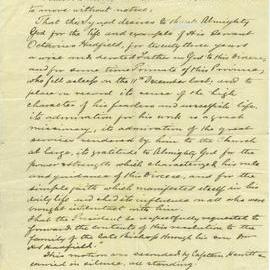 to move without notice.
That the Synod desires to thank Almighty
God for the life and example of His Servant
Octavius Hadfield, for twenty three years
a wise and devoted Father in God to this Diocese,
and for some time Primate of this Province,
who fell asleep on the 11th December last, and to
place on record its sense of the high
character of his fearless and unselfish life,
its admiration for his work as a great
missionary, its admiration of the great
service rendered by him to the Church
at large, its gratitude to Almighty God for the
power & strength which characterized his rule
and guidance of this Diocese, and for the
simple faith which manifested itself in his
daily life and which influenced all who were
brought into contact with him.
That the President be respectfully requested to
forward the contents of this resolution to the
family of the late Bishop through his son
Hadfield.
This motion was seconded by Captain Hewitt &
carried in silence, all standing